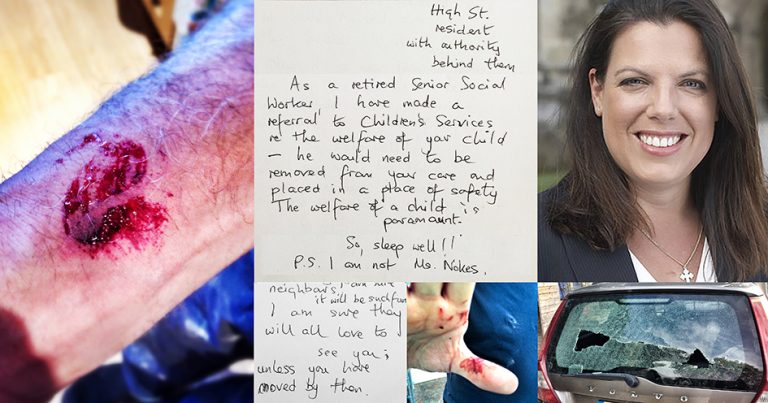 High St.
resident
with authority
behind them
As a retired Senior Social
Worker, I have made a
referral to Children's Services
re the welfare of your child
– he would need to be
removed from your care and
placed in a place of safety
The welfare of a child is
paramount.
So, sleep well!!
P.S. I am not Ms. Nokes.
neighbours, I am sure
it will be such fun
I am sure they
will all love to
see you,
unless you have
moved by then.
VOLVO